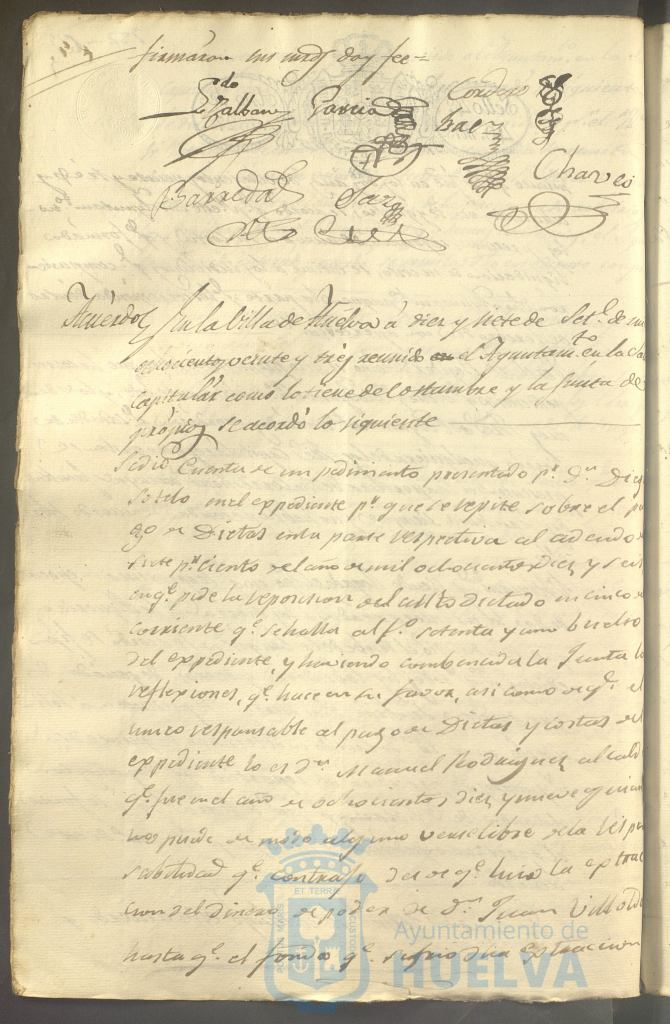 firmaron sus mrds doy fee=
Ldo
Zalbany Garcia Cordero
baez
Chaves
Barreda Saez
Acuerdo En la Villa de Huelva á diez y siete de Set.e de mil
ochocientos veinte y tres reunido en el Ayuntam.to en la Sala
capitular como lo tiene de costumbre y la Junta de
própios se acordó lo siguiente
Se dió Cuenta de un pedimento presentado p.r D.n Diego
Sotelo en el expediente p.r que se repite sobre el pa
go de Dietas en la parte respectiva al adeudo
siete p.r ciento del año de mil ochocientos diez y seis
en q.e pide la reposicion del auto dictado en cinco
corriente q.e se halla al f.o setenta y uno buelto
del expediente, y haviendo combencida la Junta
reflexiones, q.e hace en su favor, asi como de q.e el
unico responsable al pago de Dietas y costas del
expediente lo es d.n Manuel Rodriguez alcalde
q.e fue en el año de ochocientos diez y nueve quien
no puede de modo alguno verse libre de la respon
sabilidad q.e contrajo desde q.e hizo la extrac
cion del dinero de poder de d.n Juan Villolde
hasta q.e el fondo q.e sufrió dha extraccion
ET TERRE
Ayuntamiento de
HUELVA